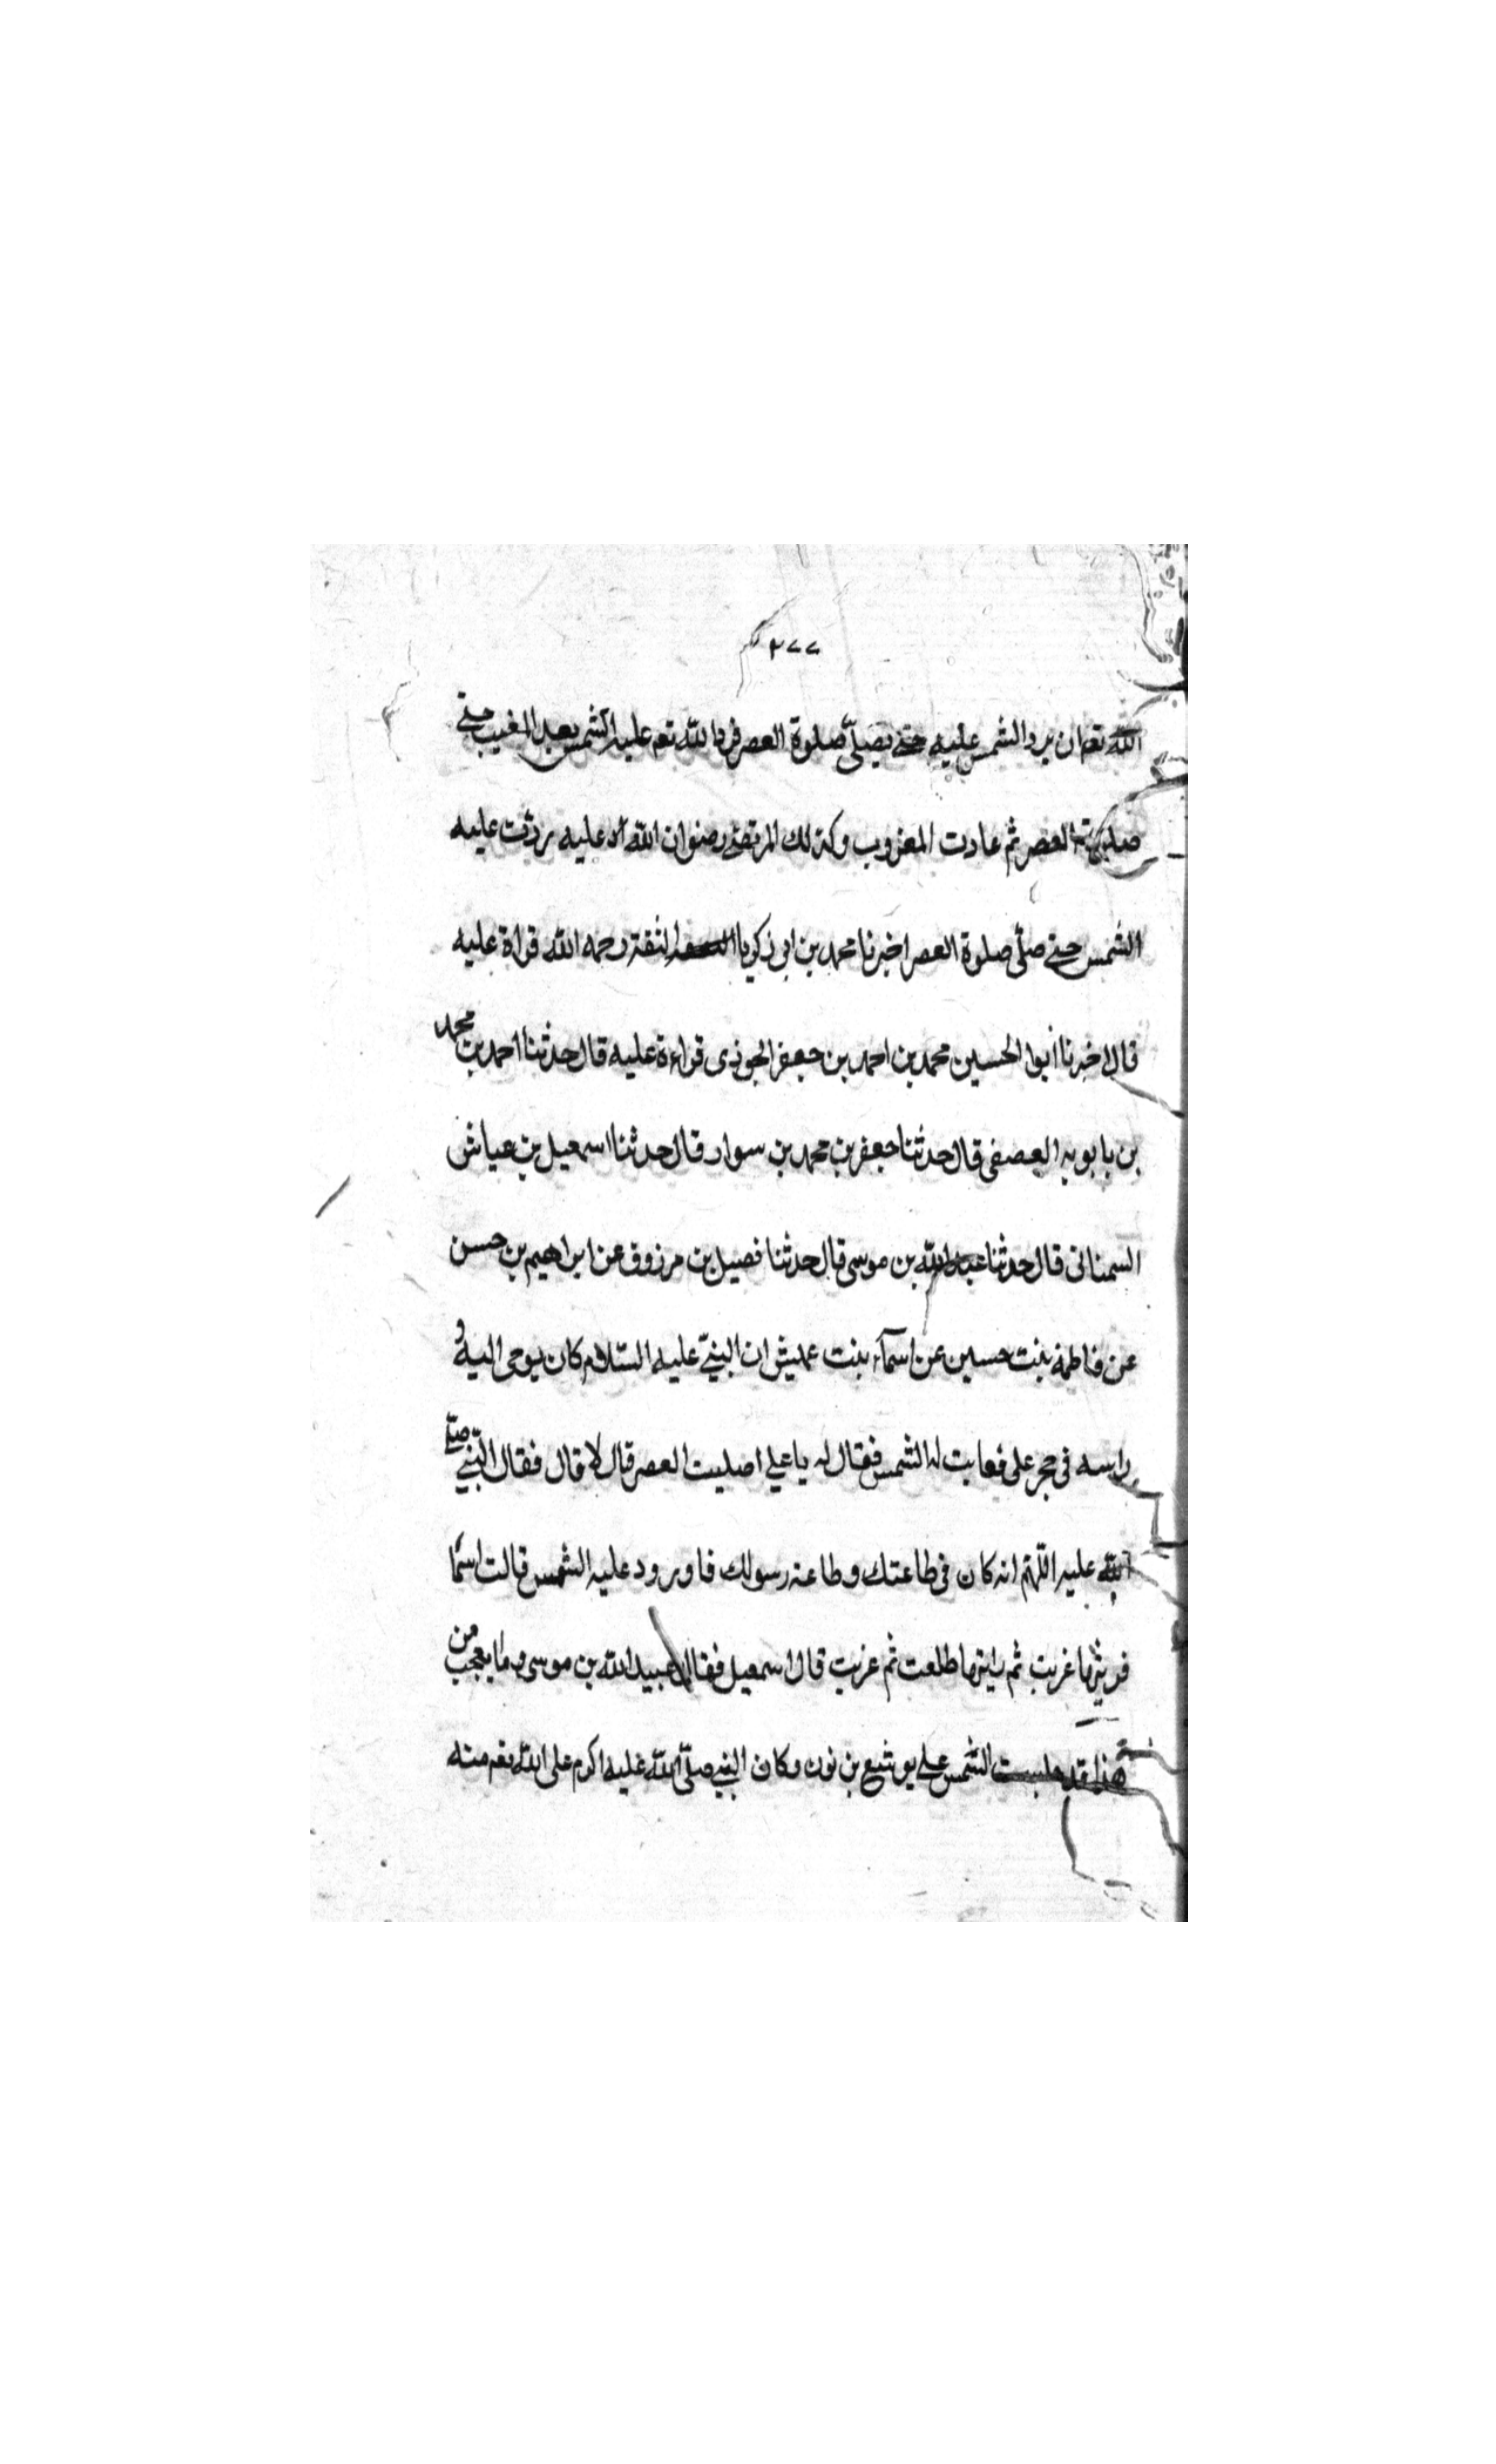 ٢٧٧
الله تعم ان يرد الشمس عليه حتى يصلّى صلوة العصر فرد الله تعم عليه الشمس بعد المغيب حتى
صلى العصر ثم عادت المغروب وكذلك المرتضى رضوان الله عليه ردّت عليه
الشمس حتى صلّى صلوة العصر اخبرنا محمد بن ابى زكويا الثقة رحمه الله قراة عليه
قال اخبرنا ابوا الحسين محمد بن احمد بن جعفر الجوذى قراءة عليه قال حدثنا احمد بن محمد
بن بابويه العصفى قال حدثنا جعفر بن محمد بن سوار قال حدثنا اسمعيل بن عياش
السمنانى قال حدثنا عبيد الله بن موسى قال حدثنا فضيل بن مرزوق عن ابراهيم بن حسن
عن فاطمة بنت حسين عن اسمآء بنت عميش ان النبىّ عليه السّلام كان يوحى اليه و
راسه فى حجر على فغابت له الشمس فقال له يا على اصليت العصر قال لا قال فقال النّبى صلّى
الله عليه اللّهمّ انه كان فى طاعتك وطاعة رسولك فاورود عليه الشمس قالت اسمّا
فريتها غربت ثم رايتها طلعت ثم غربت قال اسمعيل فقال عبيد الله بن موسى وما يعجب من
هذا قد حلبست الشمس على يوشع بن نون وكان النبى صلّى الله عليه اكرم على الله تعم منه